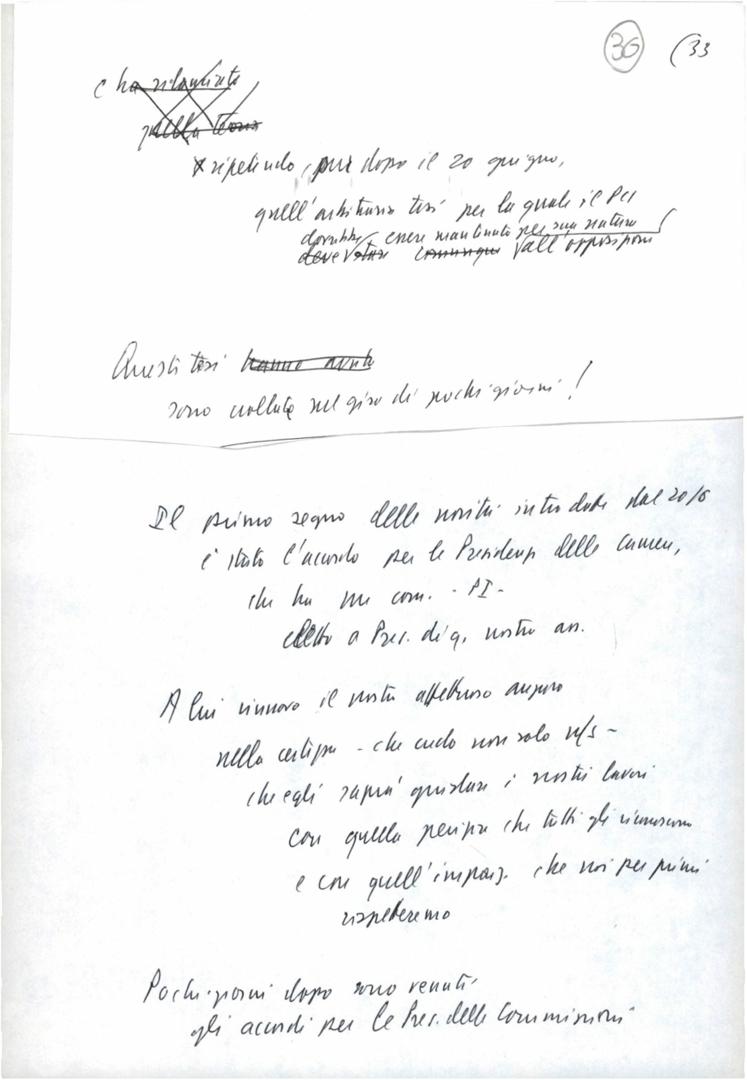 30 (33
e ha rilanciato
quella teoria
ripetendo, pur dopo il 20 giugno,
quell'arbitraria tesi per la quale il PCI
dovrebbe essere mantenuto per sua natura
deve stare comunque all'opposizione
Questi tesi hanno avuto
sono crollate nel giro di pochi giorni!
Il primo segno delle novità introdotte dal 20/6
è stato l'accordo per le Presidenze delle camere,
che ha un com. - PI -
eletto a Pres. di q. nostra ass.
A lui rinnovo il nostro affettuoso augurio
nella certezza - che credo non solo n/s -
che egli saprà guidare i nostri lavori
con quella perizia che tutti gli riconoscono
e con quell'imparz. che noi per primi
rispetteremo
Pochi giorni dopo sono venuti
gli accordi per le Pres. delle Commissioni